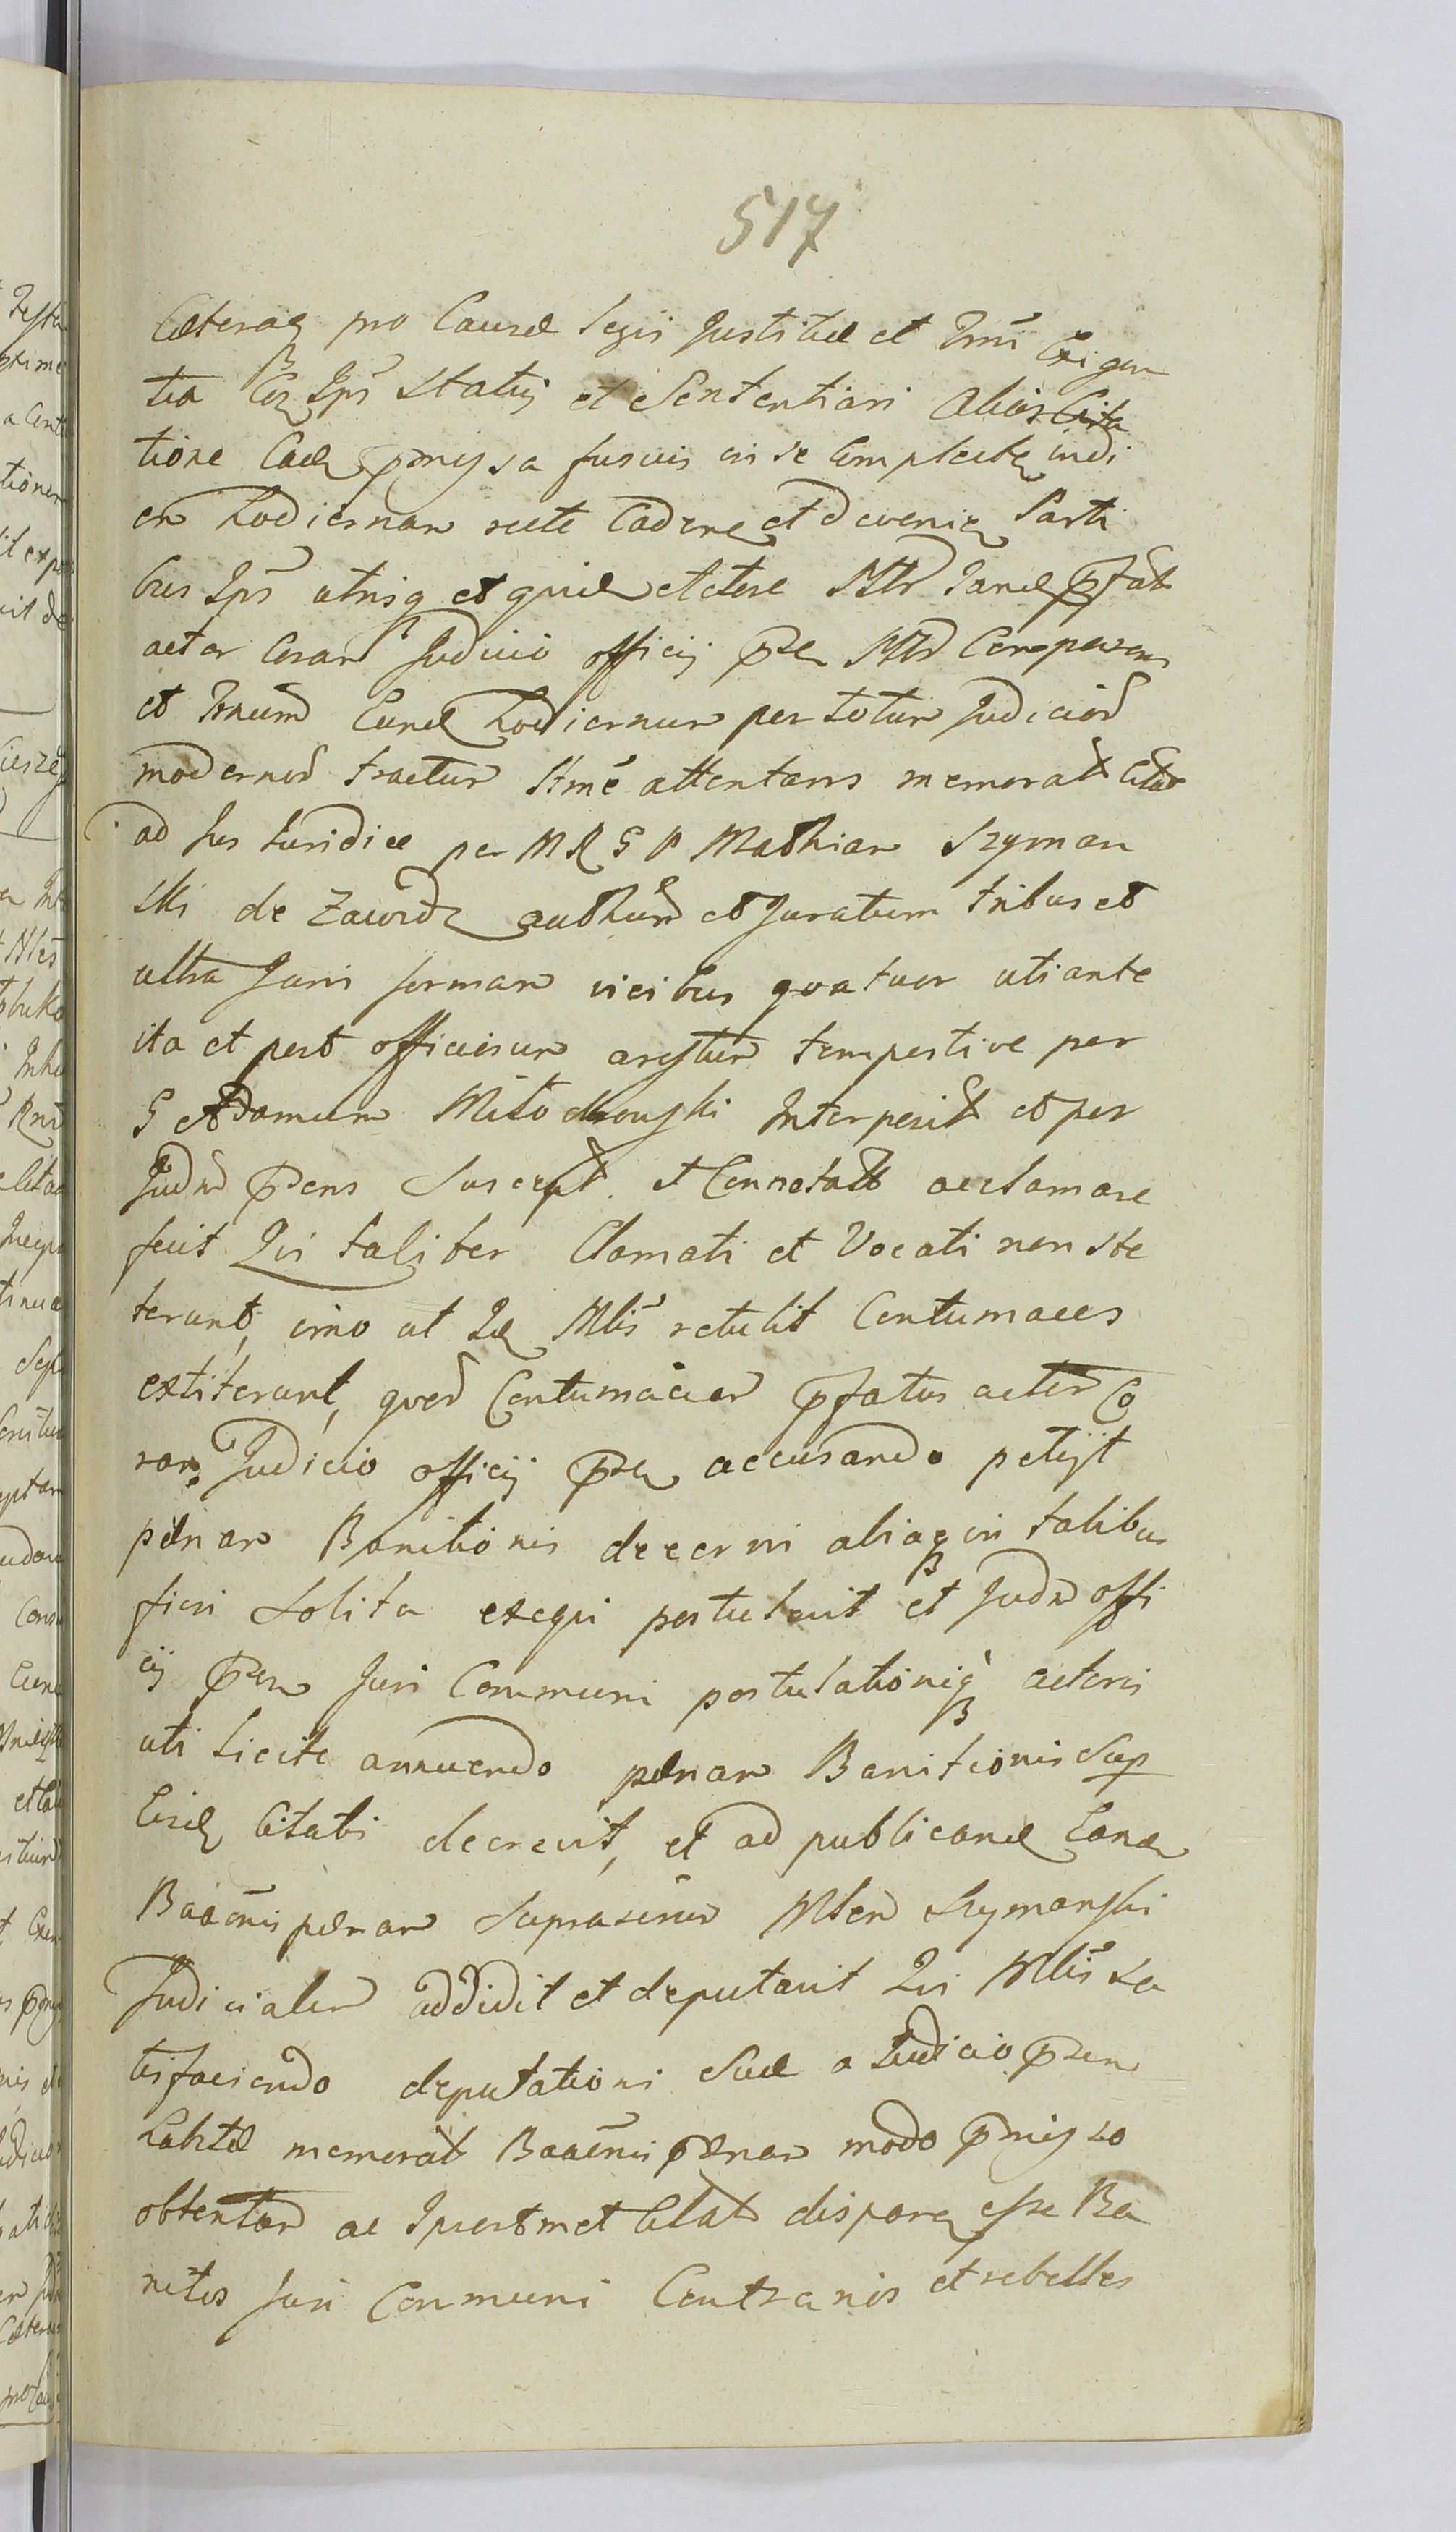 517
Cæteraq pro Causæ legis Justitiæ et Trni Exigen
tia Coq Ipsi Statuj et Sententiari alias Cita
tione Cadq pmissa fusius in se Complectq indi
em hodiernam recte Cadereq et deveniq Parti
bus Ips utrisq et qui et Mltr Janq pfat
actor Coram Judicio officij pn Mltr Comparens
et Trnum Cunq hodiernum per totum Judiciod
modernod tractum Ltme attentans memorat Citat
ad Jus Juridice per M R G P Mathiam Szyman
ski de Zawrdz authum et Juratum tribus et
ultra Juris formam vicibus quatuor uti ante
ita et post officiosum arestum tempestive per
G Adamum Mitodrowski Interposit et per
Judm pens Suscept. et Connotatt acclamare
fecit Qui taliter Clamati et Vocati non ste
terunt, imo ut Id Mlis retulit Contumaces
extiterunt, quod Contumaciam pfatus actor Co
ram Judicio officij pn accusando petijt
pænam Banitionis decerni aliaq in talibus
fieri Solita exequi postulavit et Judm offi
cij pn Juri Communi postulationiq actoris
uti licite annuendo pænam Banitionis Sup
Citatis decrevit, et ad publicand Eand
Baaonis pænam Suprascriptum Mlem Szymanski
Judicialem addidit et deputavit Qui Mlis sa
tisfaciendo deputationi Suæ a Judicio pn
memorat Baaonis pænam modo pmisso
obtentam ac Ipsosmet Citat disparq esse Ba
nitos Juri Communi Contrarios et rebelles